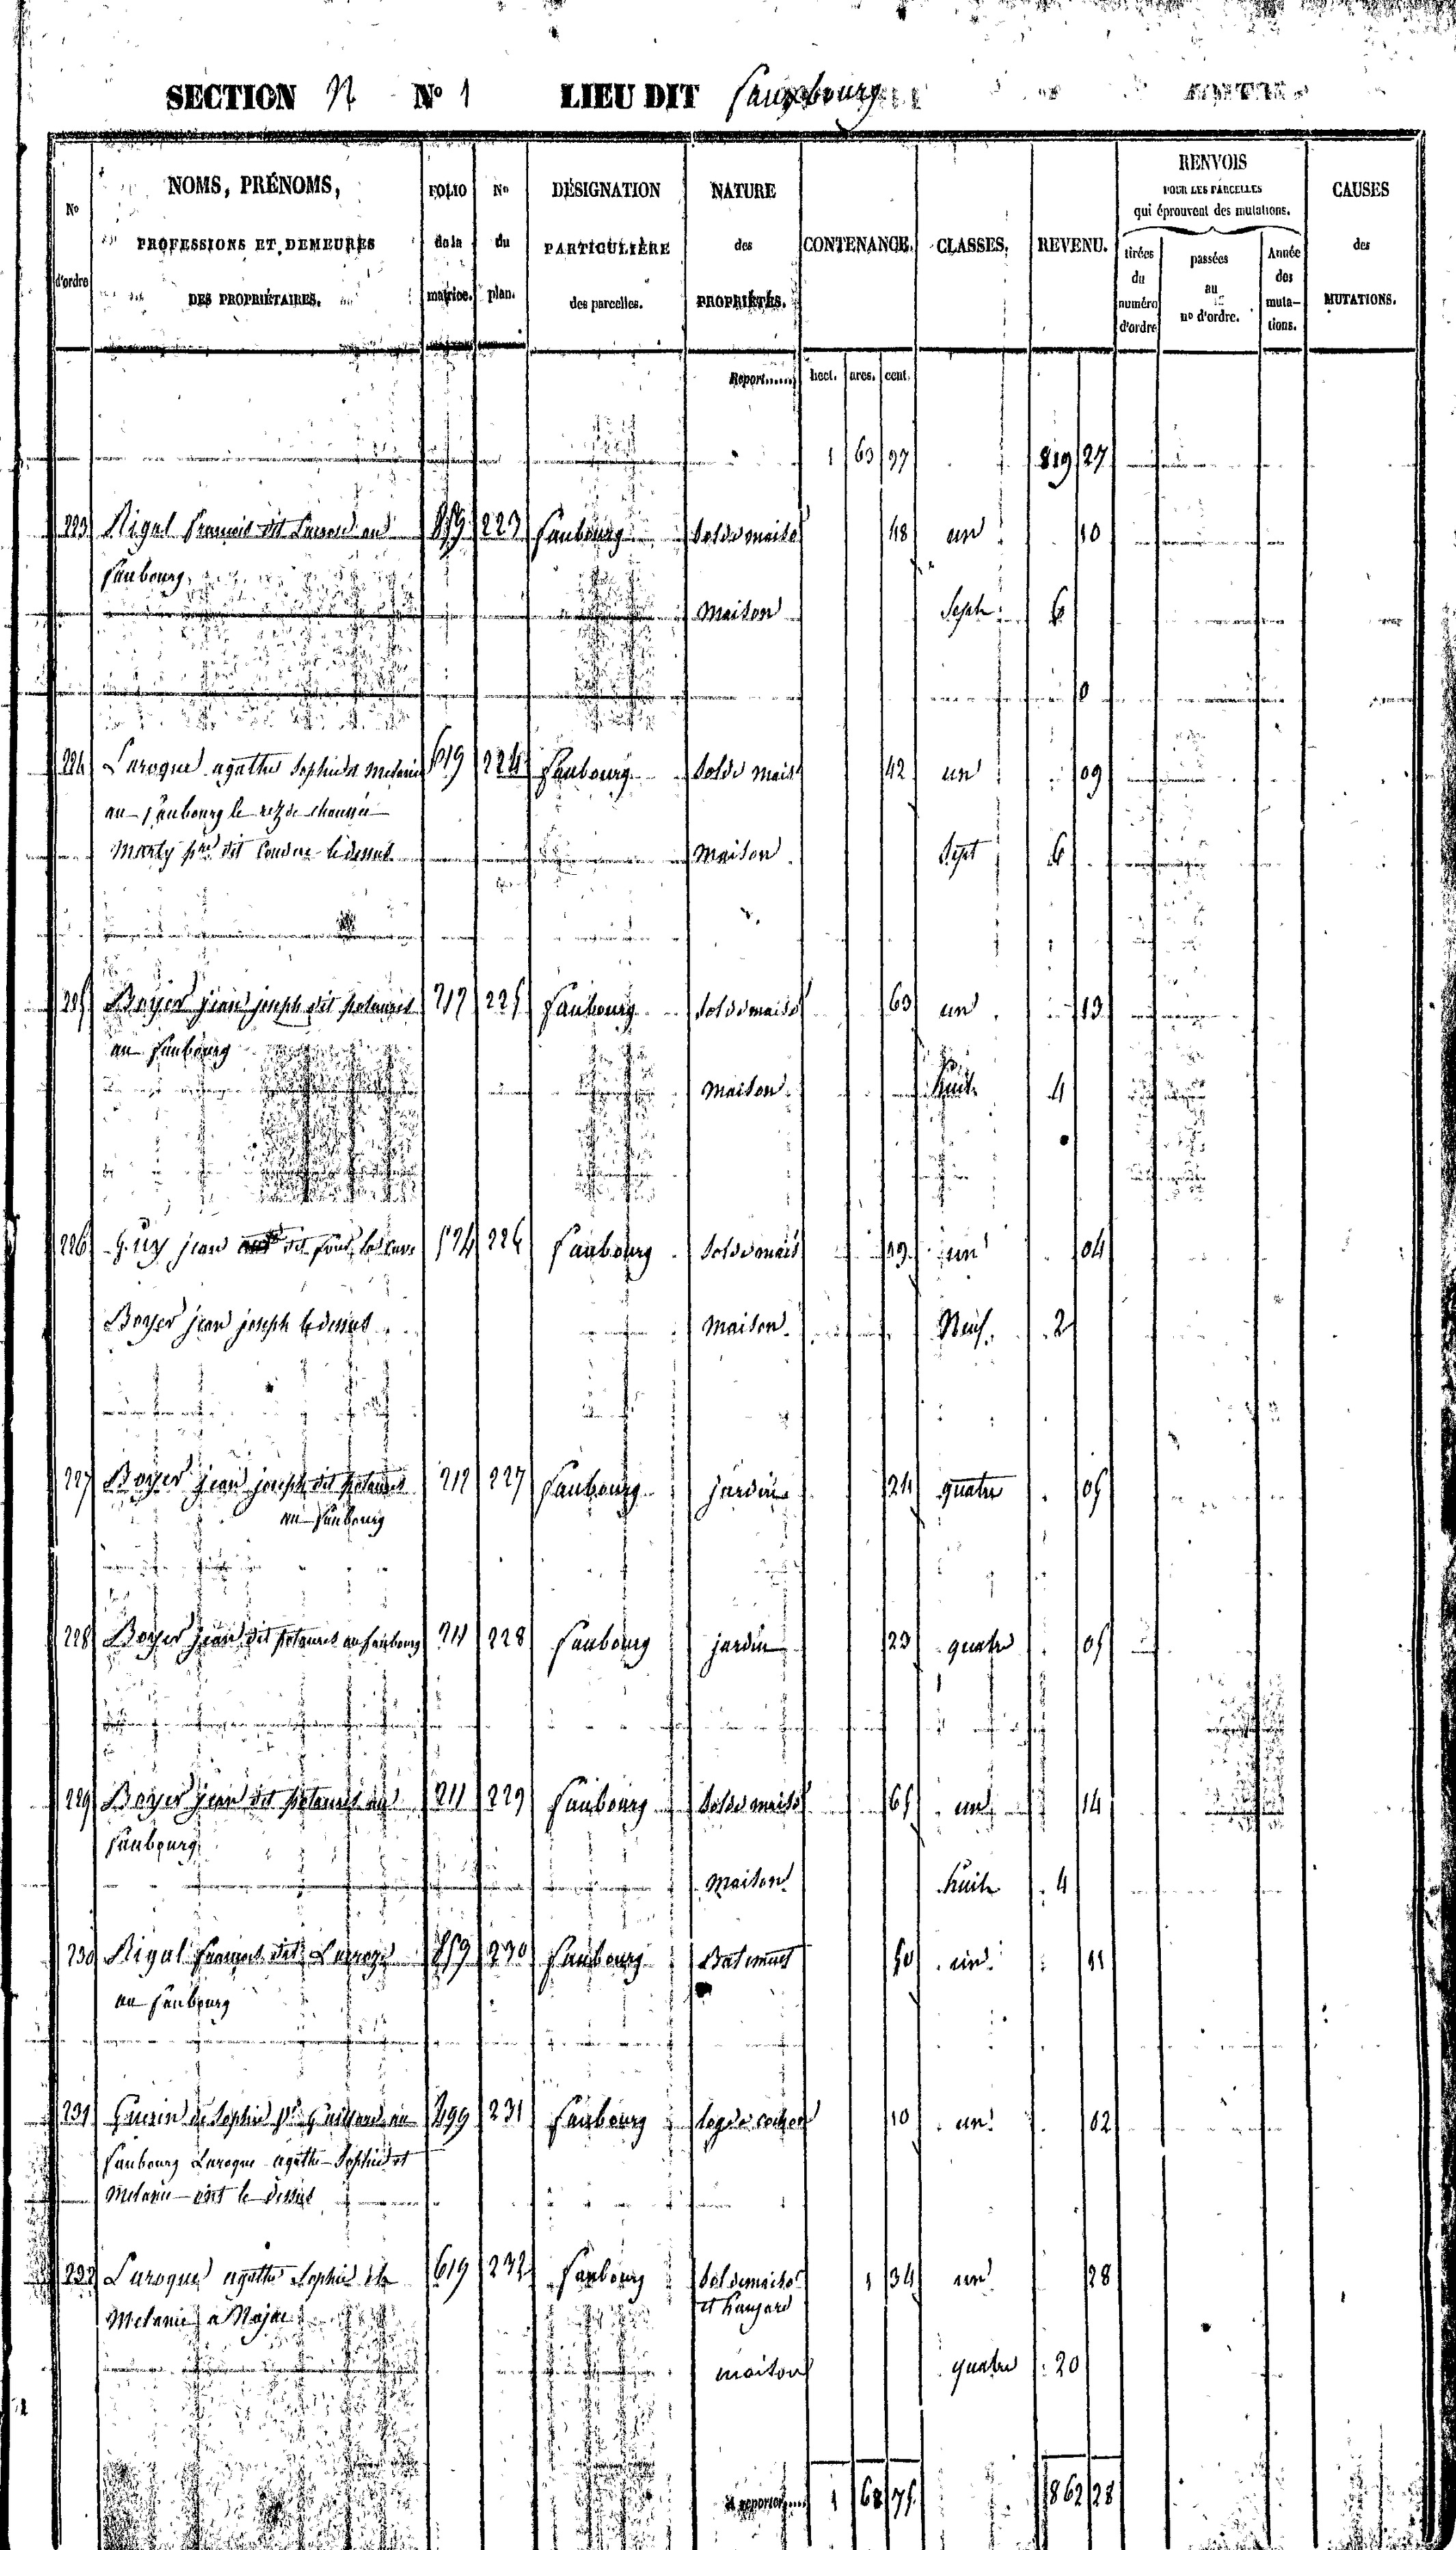 SECTION N No 1 LIEU DIT Faubourg
No d'ordre
NOMS, PRÉNOMS,
PROFESSIONS ET DEMEURES
DES PROPRIÉTAIRES.
FOLIO de la matrice.
No du plan.
DÉSIGNATION PARTICULIÈRE des parcelles.
NATURE des PROPRIÉTÉS.
CONTENANCE.
CLASSES.
REVENU.
RENVOIS
POUR LES PARCELLES
qui éprouvent des mutations.
tirées du numéro d'ordre
passées au no d'ordre.
Année des mutations.
CAUSES des MUTATIONS.
Report...... hect. ares. cent.
1 63 97 819 27
223 Rigal francois dit au 859 223 faubourg sol de maiso 48 un 10
faubourg
Maison Sept 6
224 Laroque agathe Sophie et Melanie 619 224 faubourg sol de mais 42 un 09
au faubourg le rez de chaussée
Marty dit le dessus Maison Sept 6
225 Boyer jean joseph dit 217 225 faubourg sol de maiso 63 un 13
au faubourg
Maison huit 4
226 jean dit 226 faubourg sol de mais 19 un 04
Boyer jean joseph le dessus Maison Neuf 2
227 Boyer jean joseph dit 217 227 faubourg jardin 24 quatre 05
au faubourg
228 Boyer jean dit au faubourg 211 228 faubourg jardin 23 quatre 05
229 Boyer jean dit au 211 229 faubourg sol de maiso 65 un 14
faubourg
Maison huit 4
230 Rigal francois dit 859 230 faubourg Batiment 50 un 11
au faubourg
231 Sophie au 499 231 faubourg 10 un 02
faubourg Laroque agathe Sophie et
Melanie ont le dessus
232 Laroque agathe Sophie et 619 232 faubourg sol de maiso 1 34 un 28
Melanie a Najac et hangard
maison quatre 20
à reporter.... 1 68 75 862 28